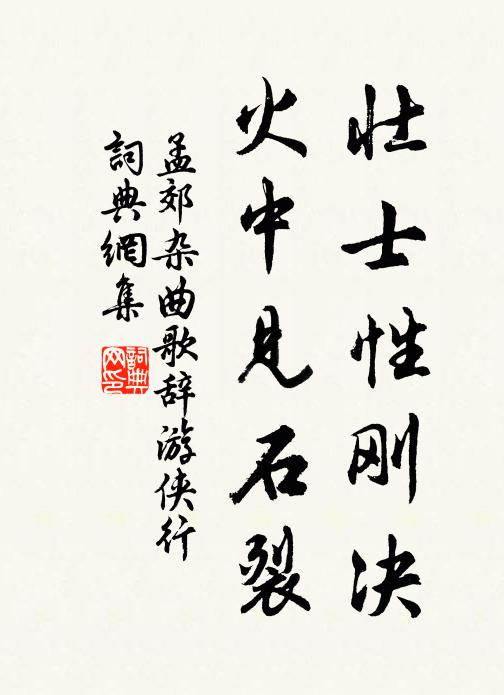 壮士性刚决
火中见石裂
孟郊杂曲歌辞游侠行
詞典網集
詞典
网印